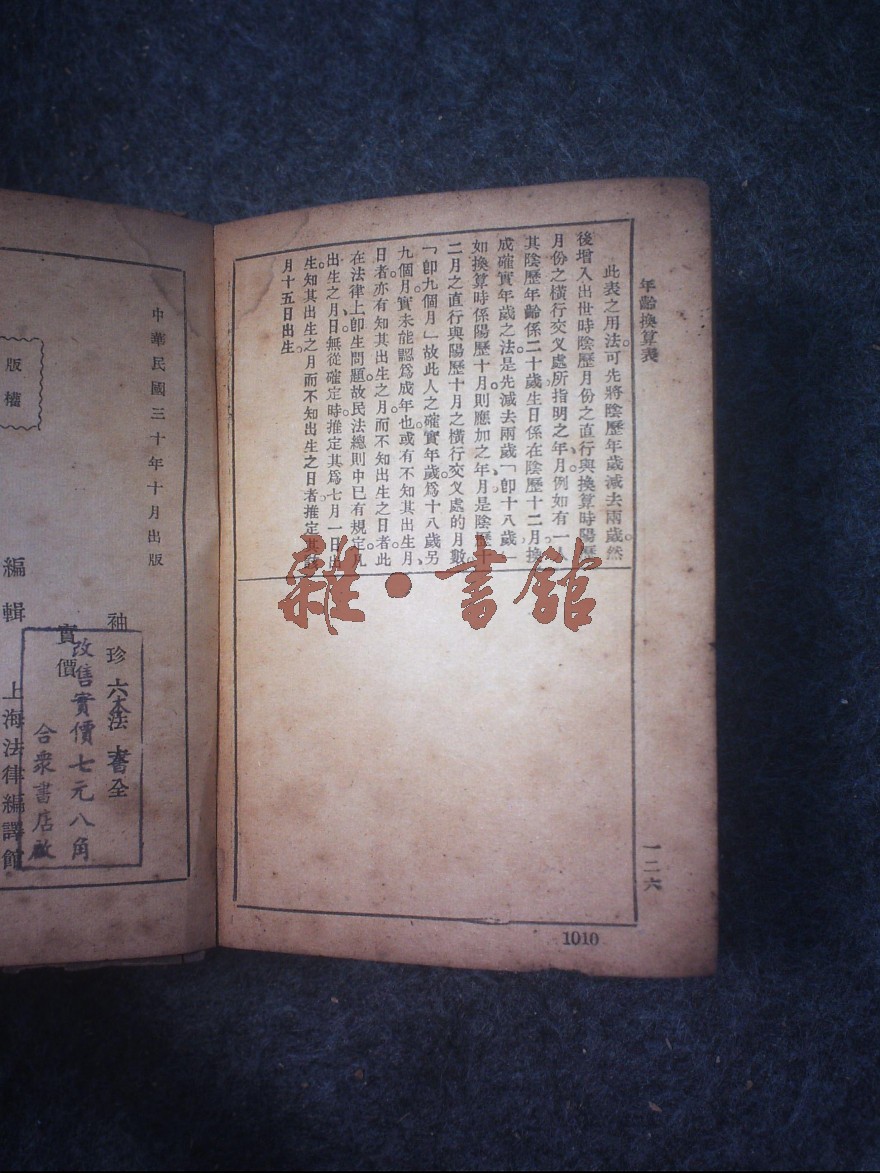 年齡換算表
此表之用法可先將陰歷年歲減去兩歲然
後增入出世時陰歷月份之直行與換算時陽歷
月份之橫行交叉處所指明之年月例如有一人
其陰歷年齡係二十歲生日係在陰歷十二月換
成確實年歲之法是先減去兩歲「卽十八歲」
如換算時係陽歷十月則應加之年月是陰歷十
二月之直行與陽歷十月之橫行交叉處的月數
「卽九個月」故此人之確實年歲爲十八歲另
九個月實未能認爲成年也或有不知其出生月
日者亦有知其出生之月而不知出生之日者此
在法律上卽生問題故民法總則中已有規定凡
出生之月日無從確定時推定其爲七月一日出
生知其出生之月而不知出生之日者推定其
月十五日出生
一二六
1010
雜·書館
版權
中華民國三十年十月出版
袖珍六法全
實價
改售實價七元八角
合衆書店啟
編輯 上海法律編譯館